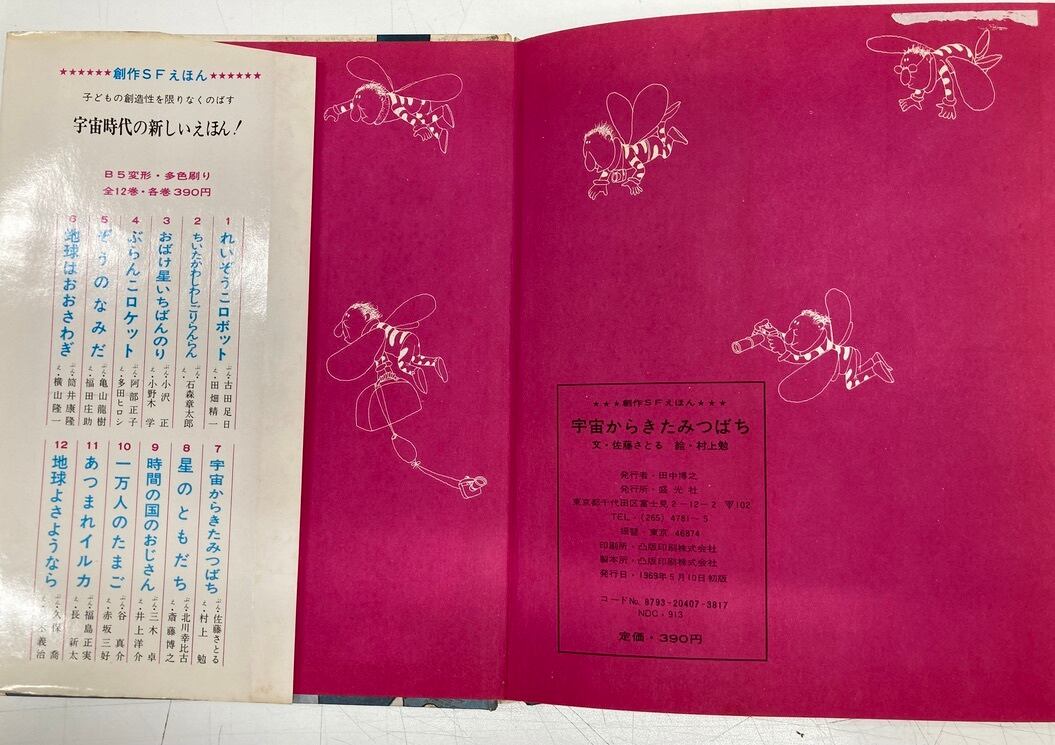 ★★★★★★創作SFえほん★★★★★★
子どもの創造性を限りなくのばす
宇宙時代の新しいえほん!
B5変形・多色刷り
全12巻・各巻390円
1 れいぞうこロボット ぶん・古田足日 え・田畑精一
2 ちいたかわしわしごりらんらん ぶん・え・石森章太郎
3 おばけ星いちばんのり ぶん・小沢正 え・小野木学
4 ぶらんこロケット ぶん・阿部正子 え・多田ヒロシ
5 ぞうのなみだ ぶん・亀山龍樹 え・福田庄助
6 地球はおおさわぎ ぶん・筒井康隆 え・横山隆一
7 宇宙からきたみつばち ぶん・佐藤さとる え・村上勉
8 星のともだち ぶん・北川幸比古 え・斎藤博之
9 時間の国のおじさん ぶん・三木卓 え・井上洋介
10 一万人のたまご ぶん・谷真介 え・赤坂三好
11 あつまれイルカ ぶん・福島正実 え・長新太
12 地球よさようなら ぶん・久保喬 え・義治
★★★創作SFえほん★★★
宇宙からきたみつばち
文・佐藤さとる 絵・村上勉
発行者・田中博之
発行所・盛光社
東京都千代田区富士見2-12-2 〒102
TEL・(265)4781〜5
振替・東京 46874
印刷所・凸版印刷株式会社
製本所・凸版印刷株式会社
発行日・1969年5月10日初版
コードNo. 8793-20407-3817
NDC・913
定価・390円